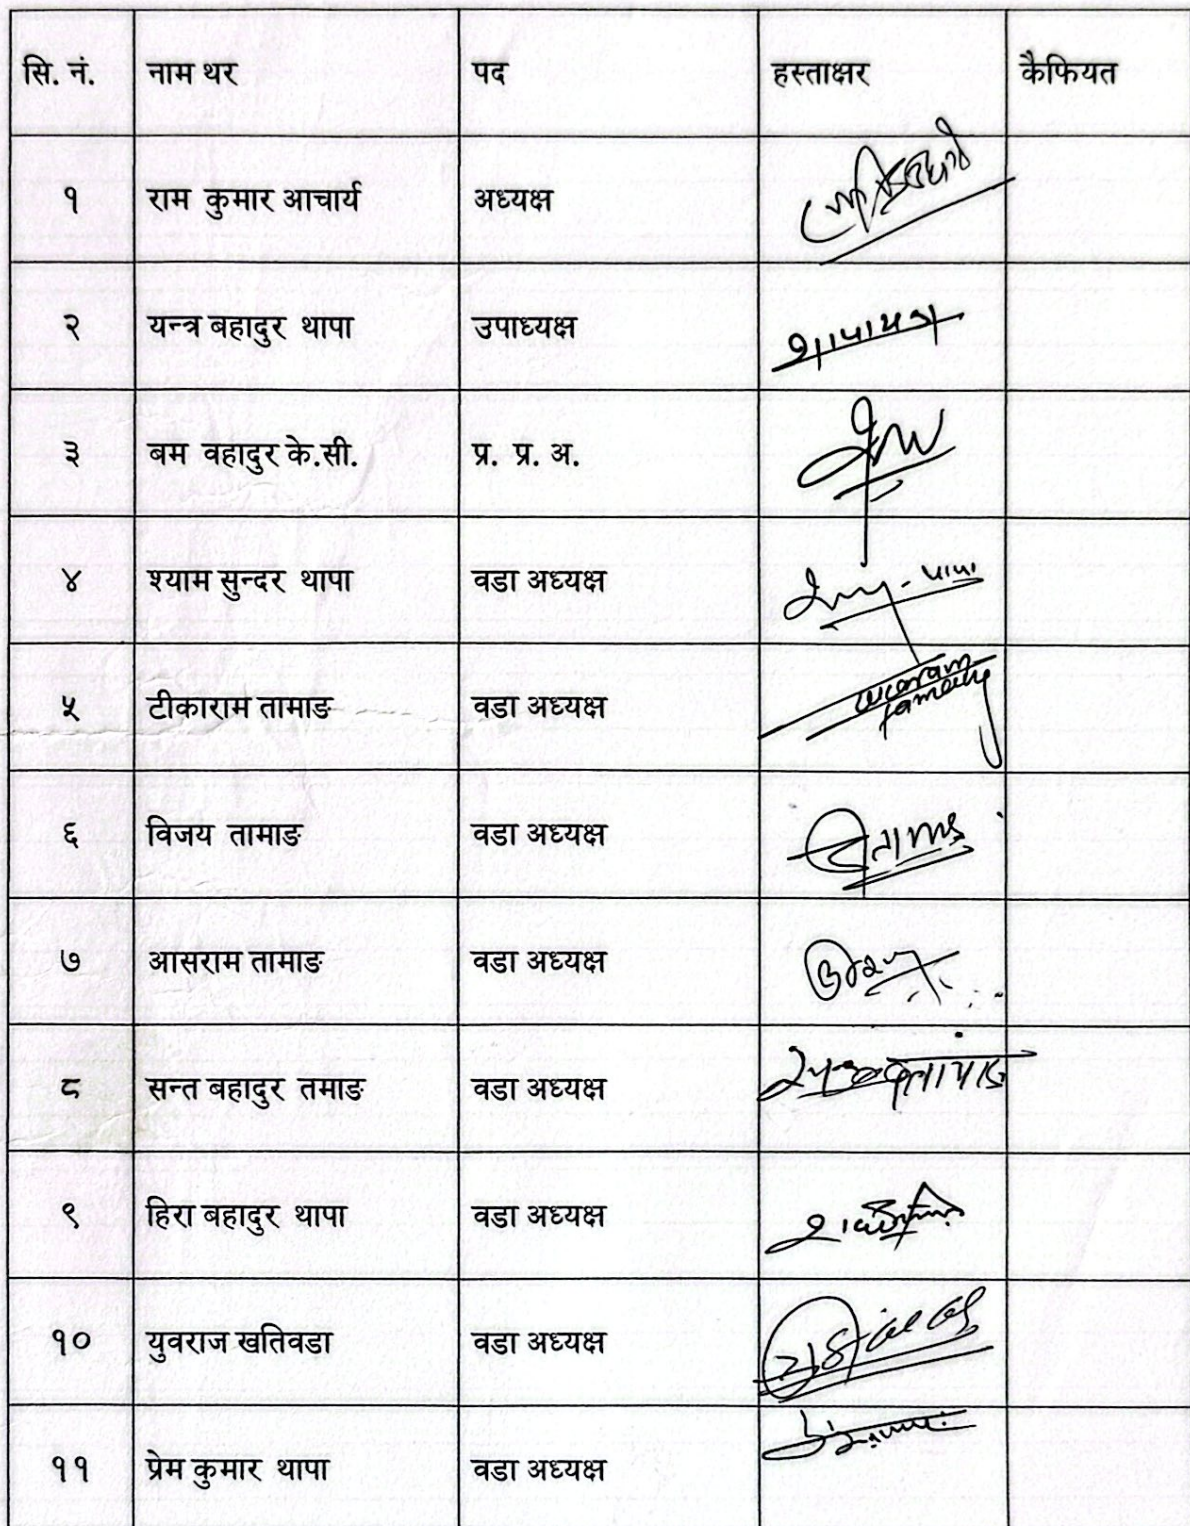 सि. नं. नाम थर पद हस्ताक्षर कैफियत
१ राम कुमार आचार्य अध्यक्ष
२ यन्त्र बहादुर थापा उपाध्यक्ष
३ बम वहादुर के.सी. प्र. प्र. अ.
४ श्याम सुन्दर थापा वडा अध्यक्ष
५ टीकाराम तामाङ वडा अध्यक्ष
६ विजय तामाङ वडा अध्यक्ष
७ आसराम तामाङ वडा अध्यक्ष
८ सन्त बहादुर तमाङ वडा अध्यक्ष
९ हिरा बहादुर थापा वडा अध्यक्ष
१० युवराज खतिवडा वडा अध्यक्ष
११ प्रेम कुमार थापा वडा अध्यक्ष